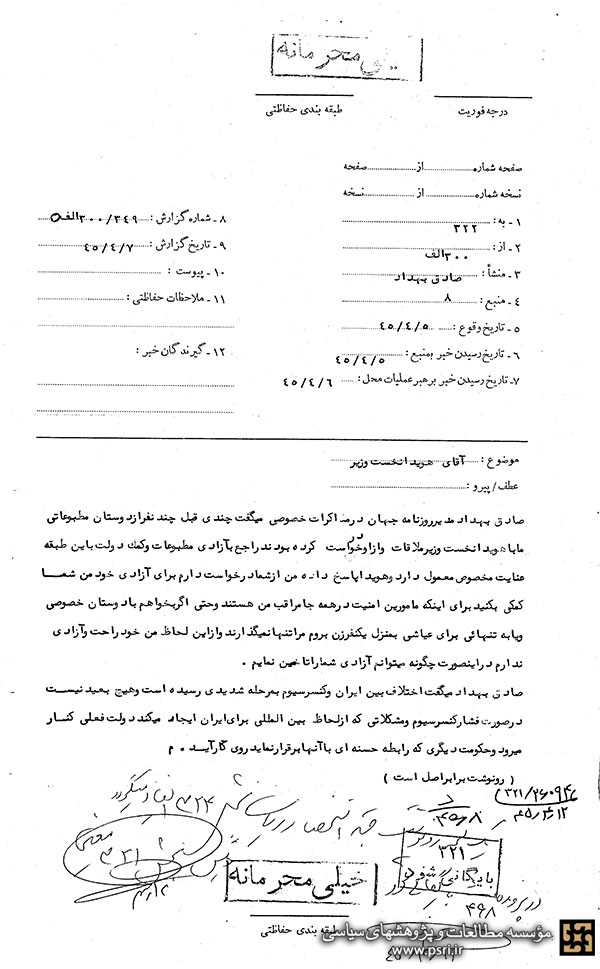 خیلی محرمانه
درجه فوریت
طبقه بندی حفاظتی
صفحه شماره ........ از ........ صفحه
نسخه شماره ........ از ........ نسخه
۱ـ به: ۳۲۲
۲ـ از: ۳۰۰ الف
۳ـ منشأ: صادق بهداد
۴ـ منبع: ۸
۵ـ تاریخ وقوع: ۴۵/۴/۵
۶ـ تاریخ رسیدن خبر بمنبع: ۴۵/۴/۵
۷ـ تاریخ رسیدن خبر برهبر عملیات محل: ۴۵/۴/۶
۸ـ شماره گزارش: ۳۰۰/۳۴۹ الف
۹ـ تاریخ گزارش: ۴۵/۴/۷
۱۰ـ پیوست:
۱۱ـ ملاحظات حفاظتی:
۱۲ـ گیرندگان خبر:
موضوع: آقای هویدا نخست وزیر
عطف/پیرو:
صادق بهداد مدیرروزنامه جهان درمذاکرات خصوصی میگفت چندی قبل چند نفرازدوستان مطبوعاتی
ما با هویدا نخست وزیرملاقات وازاودرخواست کرده بودند راجع بآزادی مطبوعات وکمک دولت باین طبقه
عنایت مخصوص معمول دارد وهویدا پاسخ داده من ازشما درخواست دارم برای آزادی خود من شما
کمکی بکنید برای اینکه مامورین امنیت درهمه جا مراقب من هستند وحتی اگربخواهم با دوستان خصوصی
ویا به تنهائی برای عیاشی بمنزل یکنفرزن بروم مرا تنها نمیگذارند وازاین لحاظ من خود راحت وآزادی
ندارم دراینصورت چگونه میتوانم آزادی شما را تامین نمایم .
صادق بهداد میگفت اختلاف بین ایران وکنسرسیوم بمرحله شدیدی رسیده است وهیچ بعید نیست
درصورت فشارکنسرسیوم ومشکلاتی که ازلحاظ بین المللی برای ایران ایجاد میکند دولت فعلی کنار
میرود وحکومت دیگری که رابطه حسنه ای با آنها برقرارنماید روی کارآید . م
( رونوشت برابراصل است )
۳۲۱
بایگانی شود
خیلی محرمانه
طبقه بندی حفاظتی
مؤسسه مطالعات و پژوهشهای سیاسی
www.psri.ir